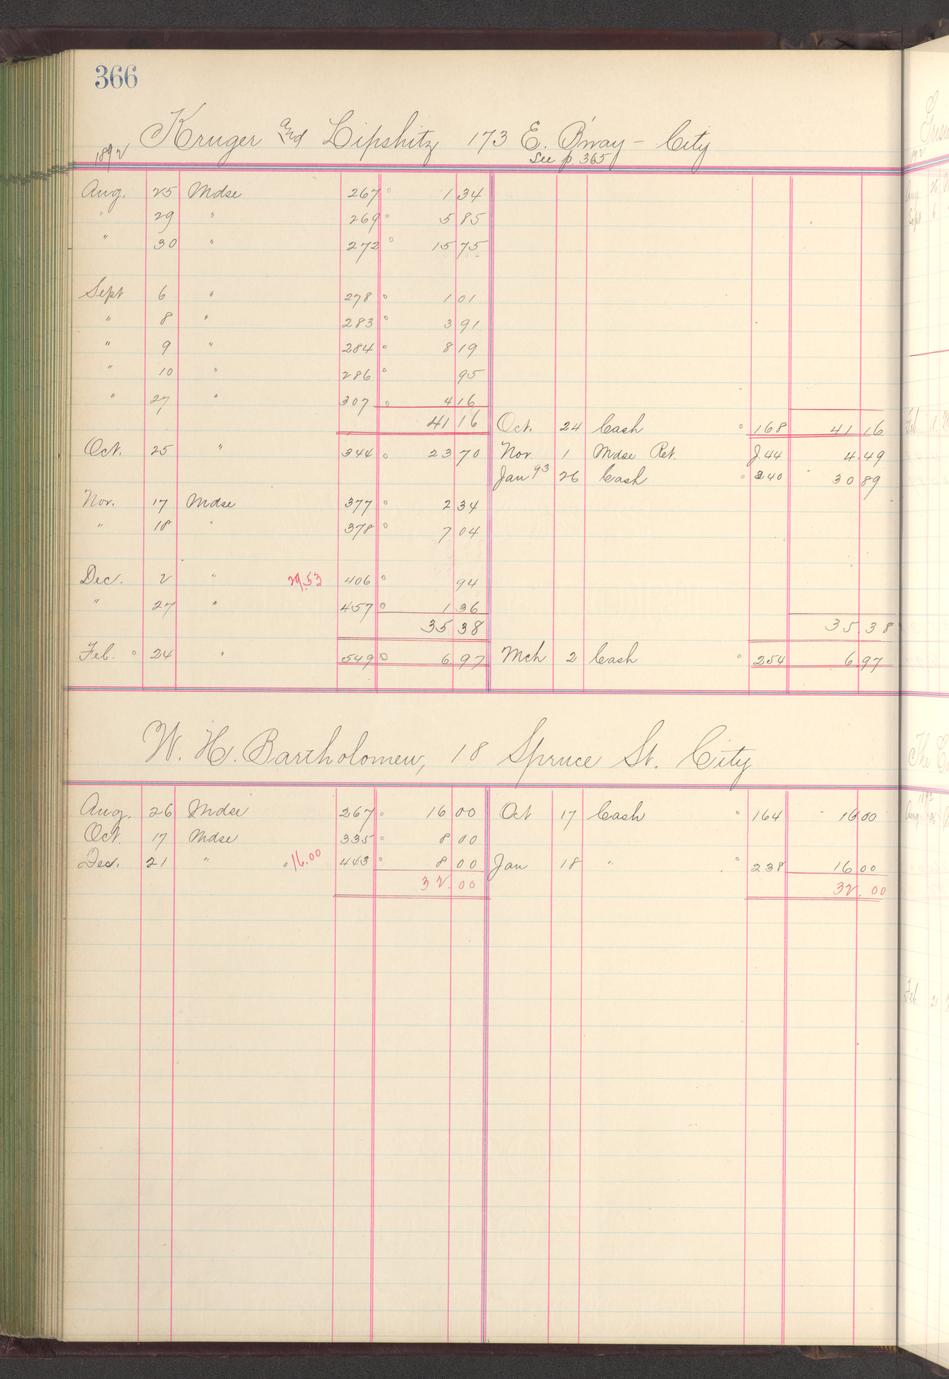 366
Kruger and Lipshitz 173 E. B'way - City
See p 365
1892
Aug. 25 Mdse 267 1 34
" 29 " 269 5 85
" 30 " 272 15 75
Sept 6 " 278 1 01
" 8 " 283 3 91
" 9 " 284 8 19
" 10 " 286 95
" 27 " 307 4 16
41 16 Oct. 24 Cash 168 41 16
Oct. 25 " 344 23 70 Nov. 1 Mdse Ret. J44 4.49
Jan 93 26 Cash 240 30 89
Nov. 17 Mdse 377 2 34
" 18 " 378 7 04
Dec. 2 " 29.53 406 94
" 27 " 457 1 36
35 38 35.38
Feb. 24 " 549 6 97 Mch 2 Cash 254 6 97
W. H. Bartholomew, 18 Spruce St. City
Aug. 26 Mdse 267 16 00 Oct 17 Cash 164 16 00
Oct. 17 Mdse 335 8 00
Dec. 21 " 16.00 443 8 00 Jan 18 " 238 16 00
32.00 32.00